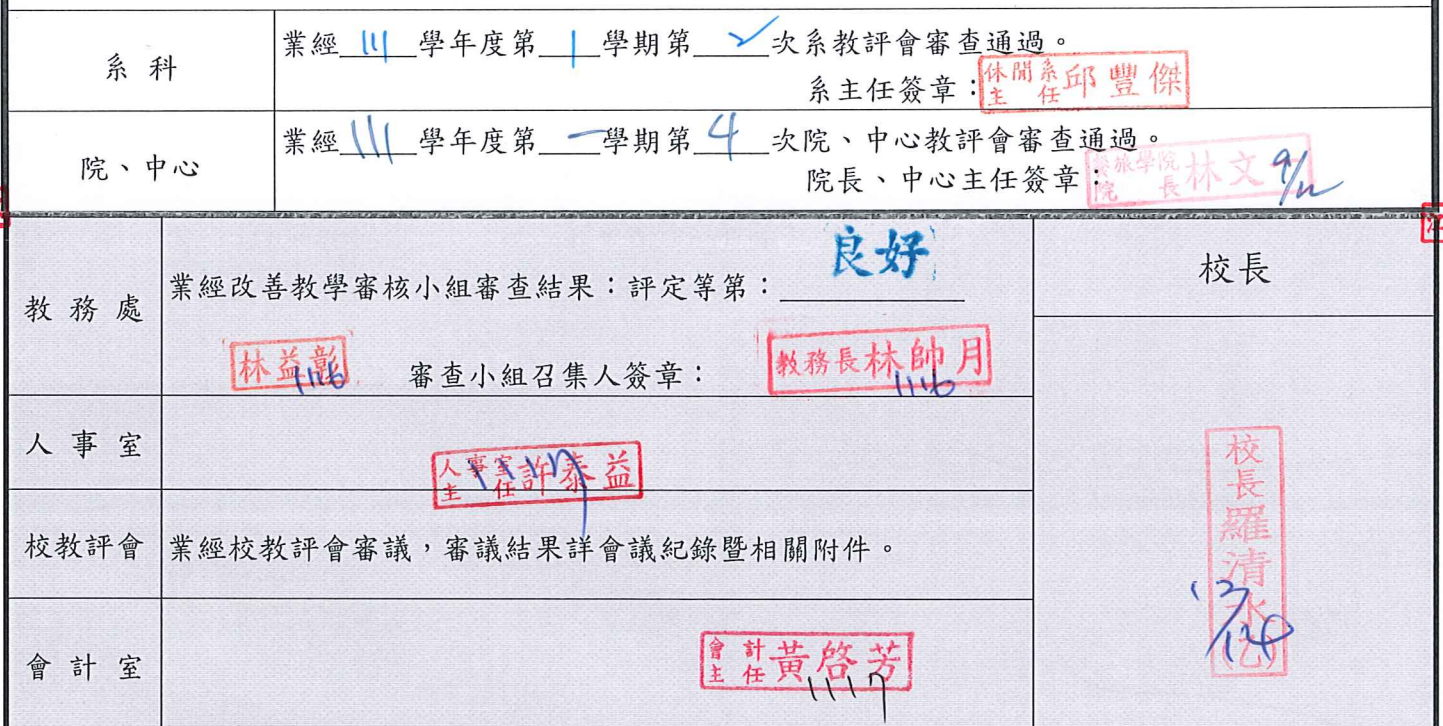 系科
業經 111 學年度第 1 學期第 2 次系教評會審查通過。
系主任簽章:
休閒系主任 邱豐傑
院、中心
業經 111 學年度第 一 學期第 4 次院、中心教評會審查通過。
院長、中心主任簽章:
旅學院院長 林文
教務處
業經改善教學審核小組審查結果:評定等第: 良好
林益彰
審查小組召集人簽章:
教務長林帥月
校長
人事室
人事室主任 許泰益
校教評會
業經校教評會審議,審議結果詳會議紀錄暨相關附件。
會計室
會計主任 黃啓芳
校長羅清水(乙)